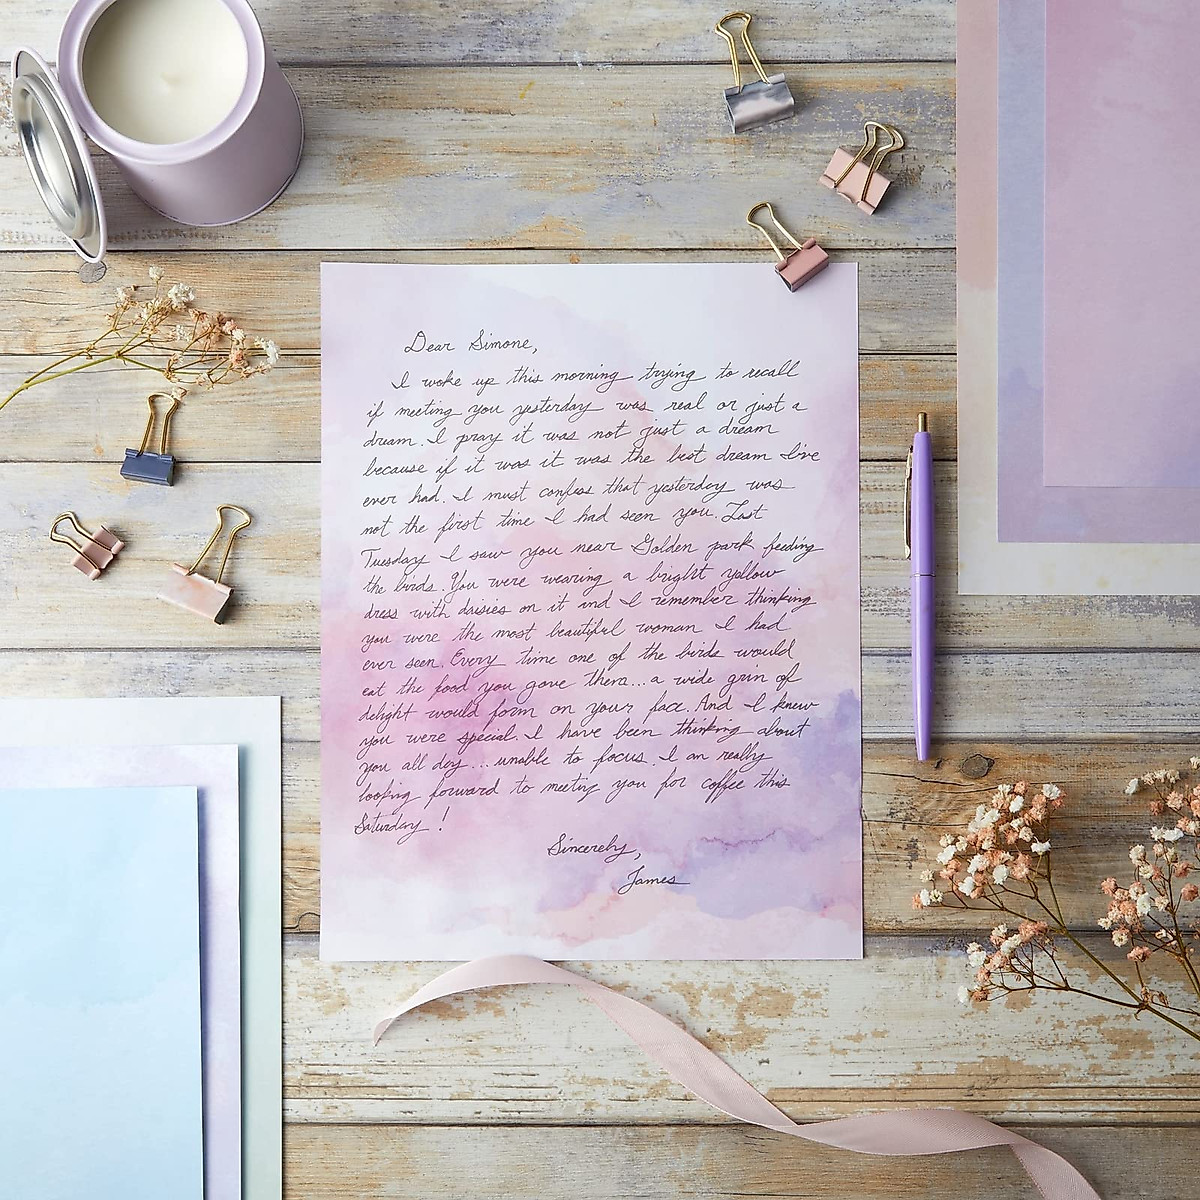 Dear Simone,
I woke up this morning trying to recall
if meeting you yesterday was real or just a
dream. I pray it was not just a dream
because if it was it was the best dream I've
ever had. I must confess that yesterday was
not the first time I had seen you. Last
Tuesday I saw you near Golden park feeding
the birds. You were wearing a bright yellow
dress with daisies on it and I remember thinking
you were the most beautiful woman I had
ever seen. Every time one of the birds would
eat the food you gave them... a wide grin of
delight would form on your face. And I knew
you were special. I have been thinking about
you all day... unable to focus. I am really
looking forward to meeting you for coffee this
Saturday!
Sincerely,
James